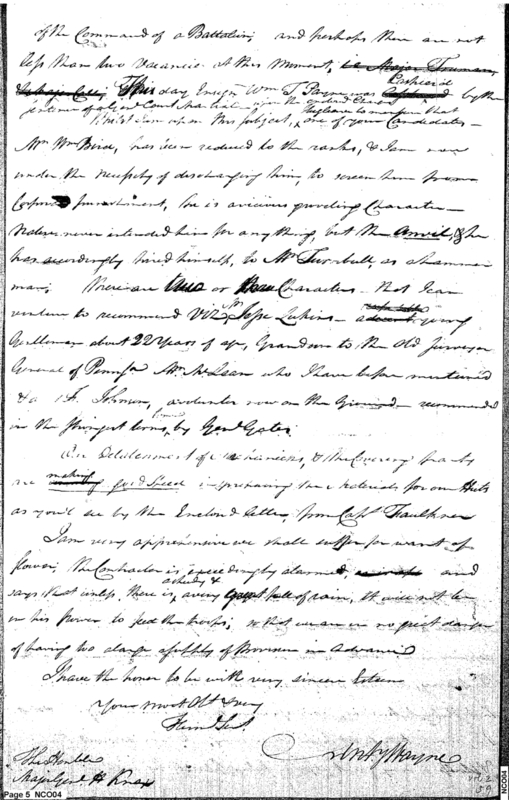 of the Command of a Battalion; and perhaps there are not
less than two Vacancies at this moment,
This day Ensign Wm T. Payne was Cashier'd by the
sentence of a Gen'l Court Martial
when upon this subject, one of your Candidates -
Mr Wm Bird, has been reduced to the ranks, & I am now
under the necessity of discharging him, to screen him from
Corporal punishment, he is a vicious groveling Character -
Nature never intended him for any thing, but the Anvil, & he
has accordingly hired himself, to Mr Turnbull, as a hammer
man; there are two or three Characters - that I can
venture to recommend Viz Mr Jesse Lukens - a young
Gentleman about 22 Years of age, Grandson to the Old Surveyor
General of Pennsa Mr McLean who I have before mentioned
& a Johnson, a volunteer now on the Ground - recommended
in the strongest terms, by Genl Gates
Our Detachment of Mechanicks, & the Covering party
are making good speed in preparing the Materials for our Huts
as you'l see by the Enclosed letter, from Capt Faulkner
I am very apprehensive we shall suffer for want of
flower, the Contractor is exceedingly alarmed, and
says that unless there is, a very great fall of rain, it will not be
in his power to feed the troops; so that we are in no great danger
of having too large a supply of provision in Advance
I have the honor to be with very sincere Esteem
Your most Obt & very
Huml Sert
Anty Wayne
The Honble
Major Genl H Knox
Page 5 NCO04
NCO04